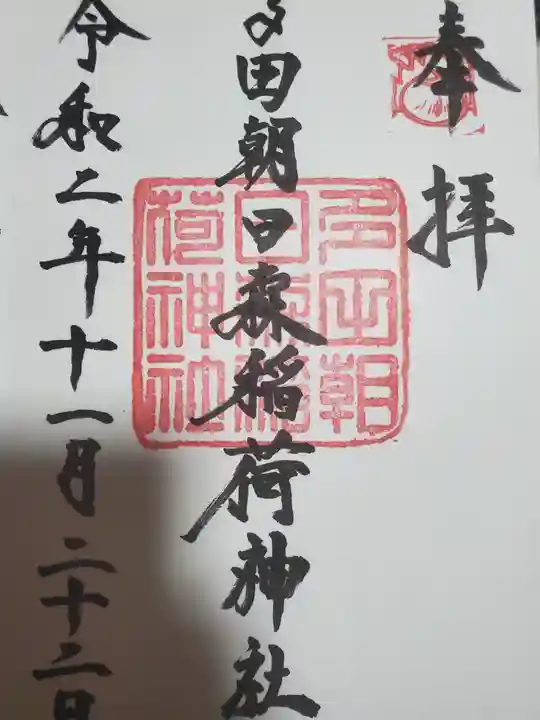 奉拝
多田朝日森稲荷神社
令和二年十一月二十二日
多田朝
日森稲
荷神社